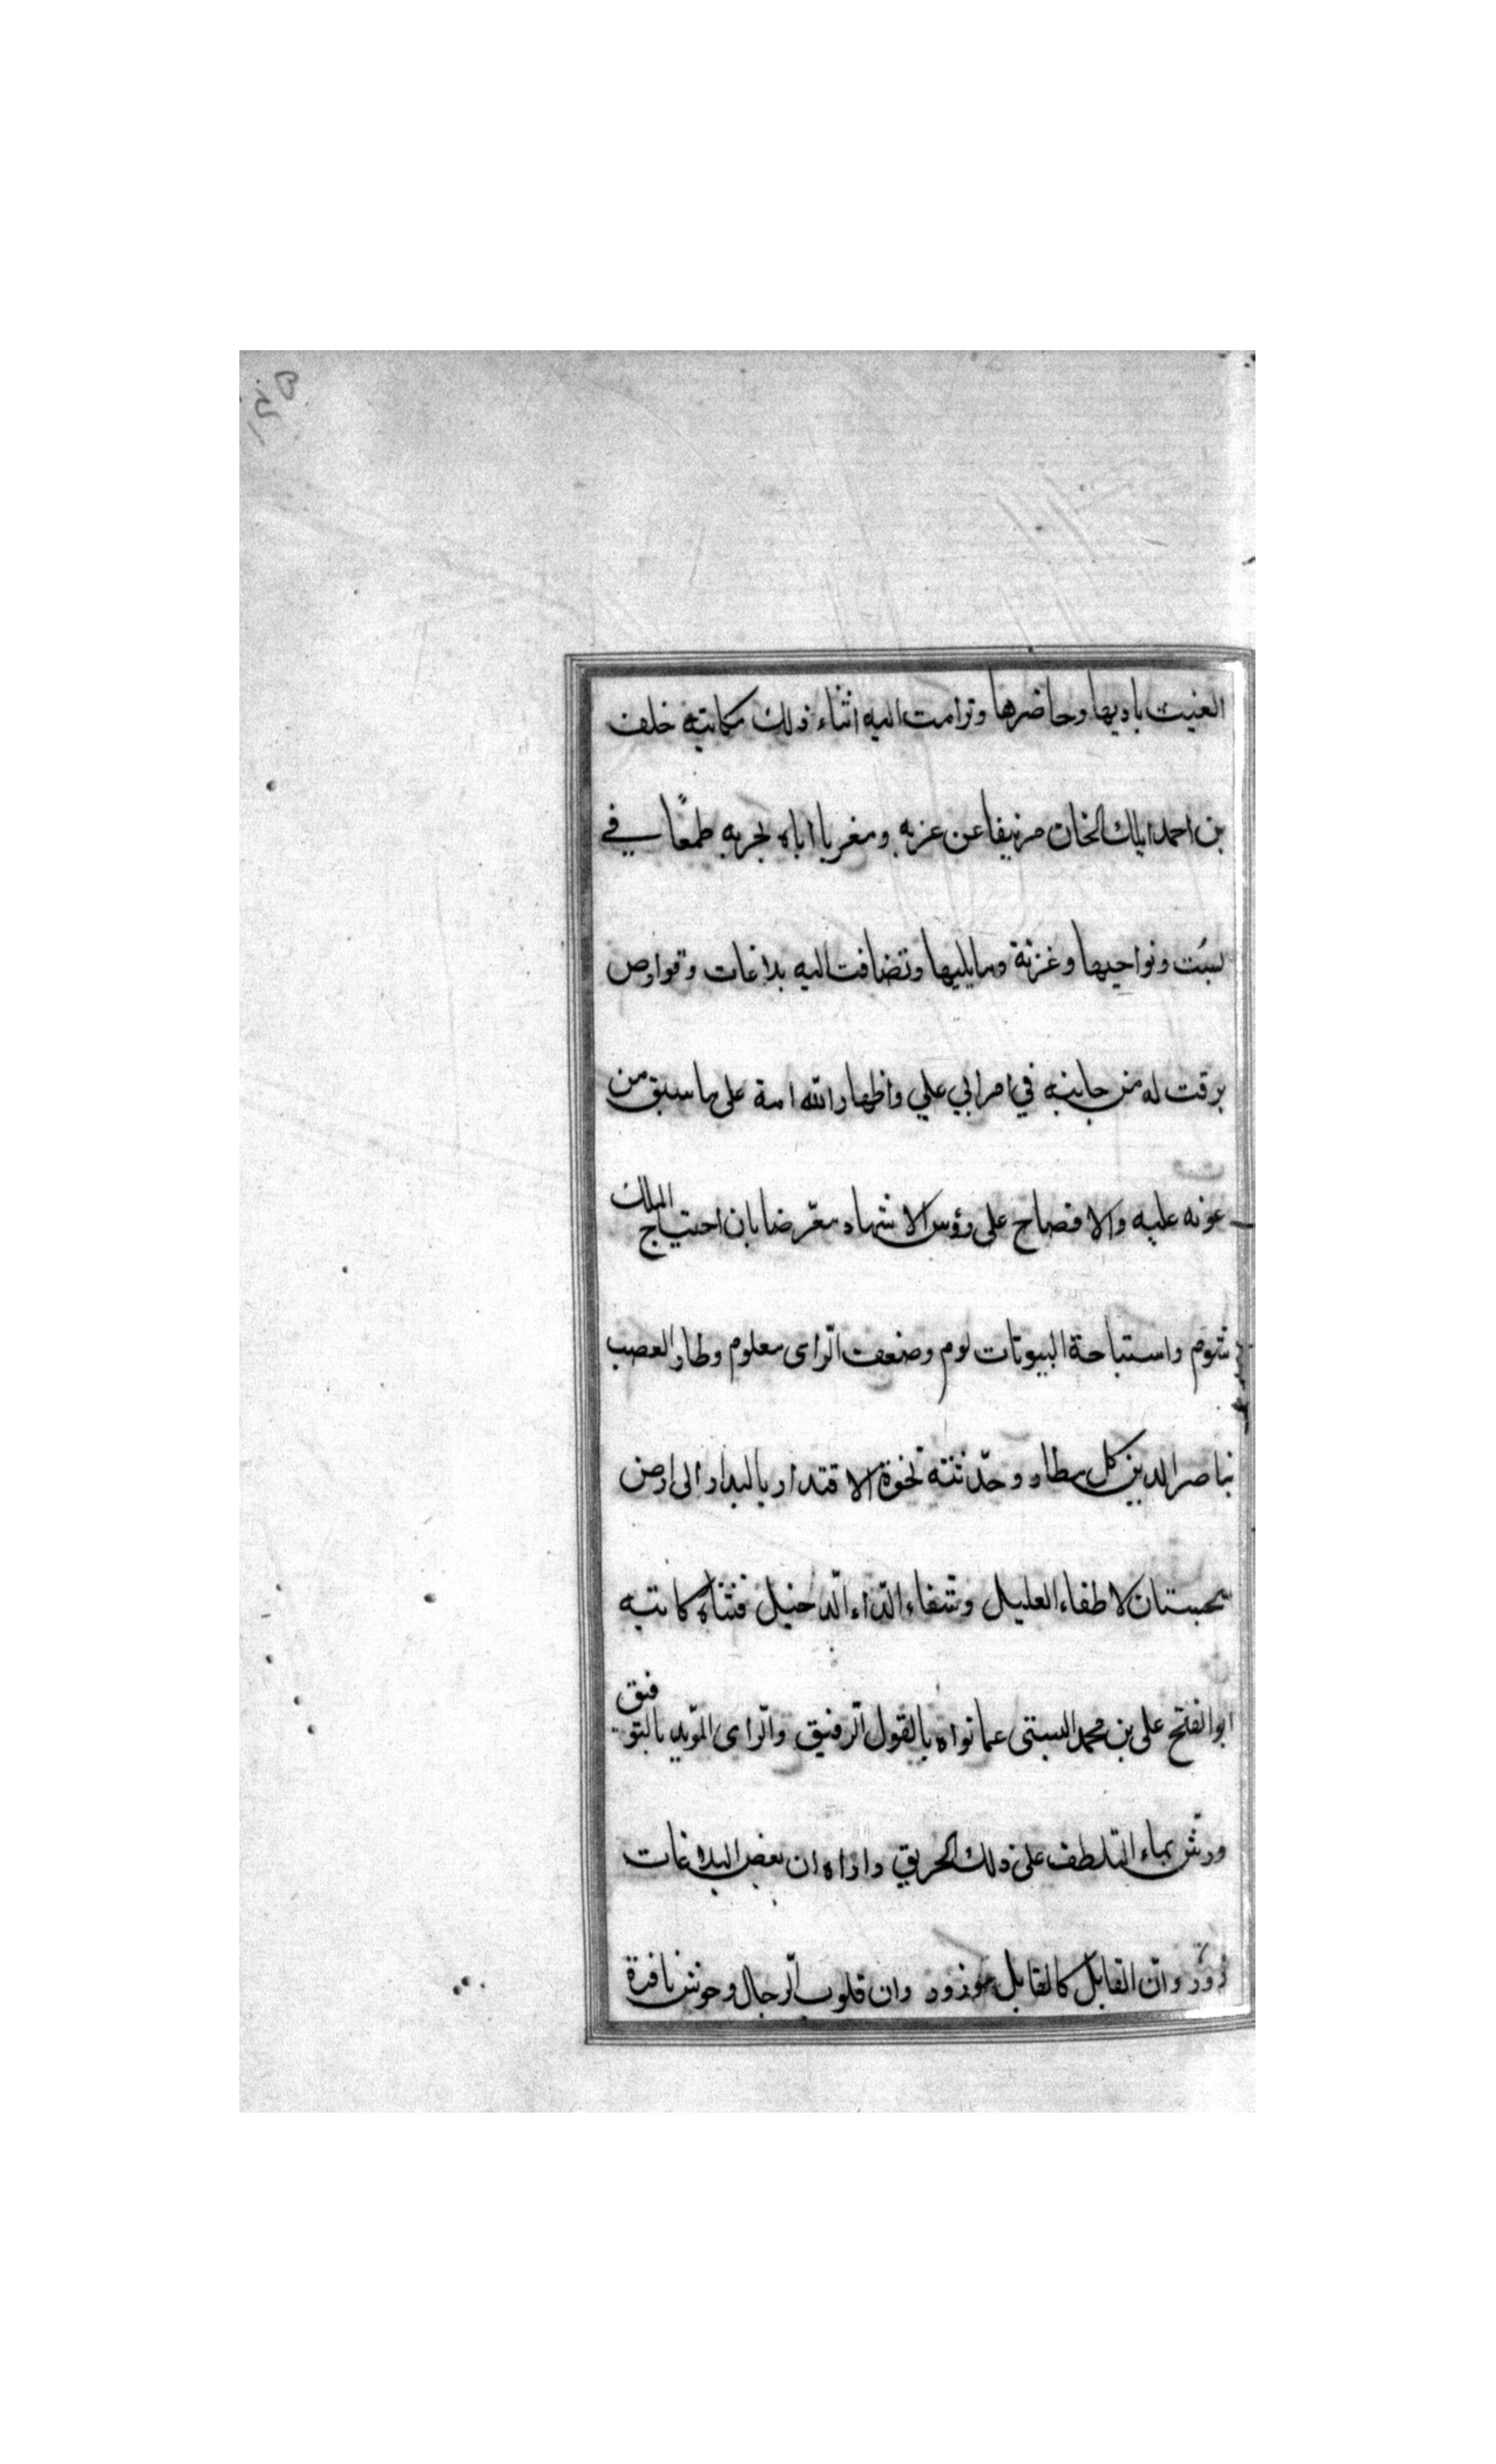 الغيث باديها وحاضرها وترامت اليه اثناء ذلك مكاتبه خلف
بن احمد ايلك الخان مزيفا عن عزبه ومغريا اياه بحربه طمعًا في
بست ونواحيها وغزنة وما يليها وتضافت اليه بلاغات وقوارص
برقت له من جانبه في امر ابي علي واظهار الندامة على ما سبق من
عونه عليه والافصاح على رؤس الاشهاد معرّضا بان احتياج الملك
شوم واستباحة البيوتات لوم وضعف الرّاى معلوم وطار العصب
بناصر الدين كل مطار وحدّثته نخوة الاقتدار بالبدار الى ارض
سجستان لاطفاء الغليل وشفاء الدّاء الدّخيل فثناه كاتبه
ابوالفتح على بن محمد البستى عما نواه بالقول الرّفيق والرّاى المؤيد بالتوفيق
ورشّ بماء التلطف على ذلك الحريق واراه ان بعض البلاغات
زوّر وانّ القابل كالقابل موزور وان قلوب الرّجال وحوش نافرة